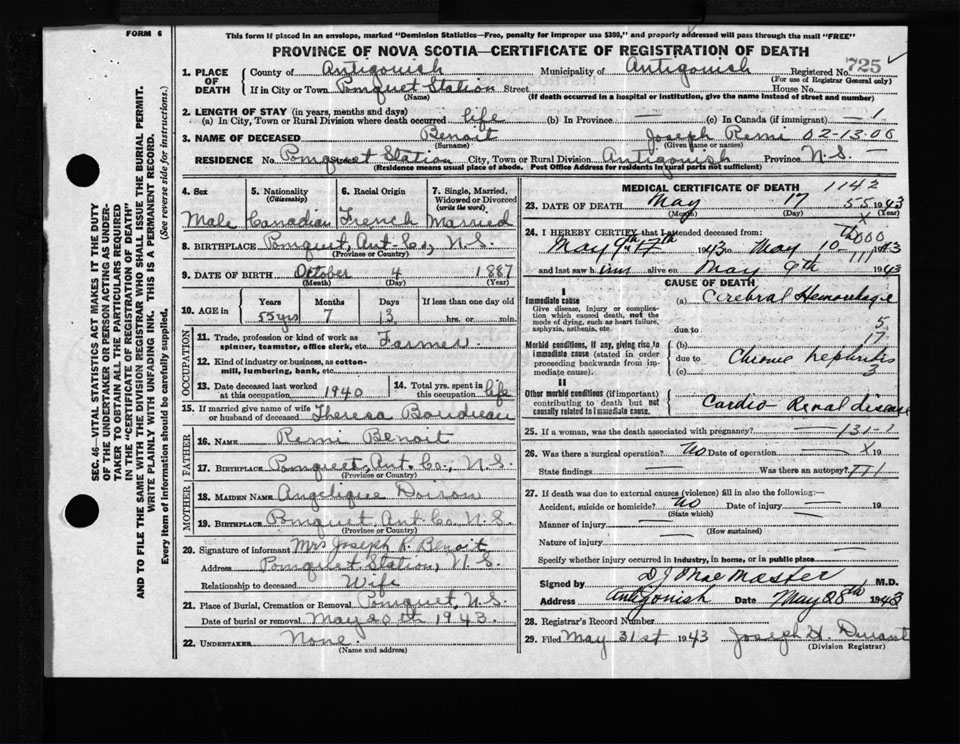 FORM 6
This form if placed in an envelope, marked "Dominion Statistics—Free, penalty for improper use $300," and properly addressed will pass through the mail "FREE"
PROVINCE OF NOVA SCOTIA—CERTIFICATE OF REGISTRATION OF DEATH
1. PLACE OF DEATH County of Antigonish Municipality of Antigonish Registered No. 725
(For use of Registrar General only)
If in City or Town Pomquet Station Street House No.
(Name) (If death occurred in a hospital or institution, give the name instead of street and number)
2. LENGTH OF STAY (in years, months and days)
(a) In City, Town or Rural Division where death occurred life (b) In Province — (c) In Canada (if immigrant) — 1
3. NAME OF DECEASED Benoit Joseph Remi 02-13.00
(Surname) (Given name or names)
RESIDENCE No. Pomquet Station City, Town or Rural Division Antigonish Province N.S.
(Residence means usual place of abode. Post Office Address for residents in rural parts not sufficient)
4. Sex
Male
5. Nationality
(Citizenship)
Canadian
6. Racial Origin
French
7. Single, Married, Widowed or Divorced
(write the word)
Married
8. BIRTHPLACE Pomquet, Ant. Co., N.S.
(Province or Country)
9. DATE OF BIRTH October 4 1887
(Month) (Day) (Year)
10. AGE Years Months Days If less than one day old
55 yrs 7 13 hrs. or min.
OCCUPATION
11. Trade, profession or kind of work as spinner, teamster, office clerk, etc. Farmer
12. Kind of industry or business, as cotton-mill, lumbering, bank, etc.
13. Date deceased last worked at this occupation 1940
14. Total yrs. spent in this occupation life
15. If married give name of wife or husband of deceased Theresa Boudreau
FATHER
16. NAME Remi Benoit
17. BIRTHPLACE Pomquet, Ant. Co., N.S.
(Province or Country)
MOTHER
18. MAIDEN NAME Angelique Doiron
19. BIRTHPLACE Pomquet Ant. Co. N.S.
(Province or Country)
20. Signature of informant Mrs Joseph R. Benoit
Address Pomquet Station, N.S.
Relationship to deceased Wife
21. Place of Burial, Cremation or Removal Pomquet, N.S.
Date of burial or removal May 20th 1943.
22. UNDERTAKER None.
(Name and address)
MEDICAL CERTIFICATE OF DEATH 1142
23. DATE OF DEATH May 17 55 1943
(Month) (Day) X
24. I HEREBY CERTIFY that I attended deceased from:
May 9th 17th 1943 to May 10th 1943
and last saw him alive on May 9th 1943
CAUSE OF DEATH
I
Immediate cause
Give disease, injury or complication which caused death, not the mode of dying, such as heart failure, asphyxia, asthenia, etc.
(a) Cerebral Hemorrhage
due to 5
Morbid conditions, if any, giving rise to immediate cause (stated in order proceeding backwards from immediate cause).
(b) 17
due to Chronic nephritis
(c) 3
II
Other morbid conditions (if important) contributing to death but not causally related to immediate cause.
Cardio - Renal disease
25. If a woman, was the death associated with pregnancy? 131-1
26. Was there a surgical operation? No Date of operation — X 19
State findings — Was there an autopsy?
27. If death was due to external causes (violence) fill in also the following:—
Accident, suicide or homicide? No Date of injury — 19
(State which)
Manner of injury —
(How sustained)
Nature of injury —
Specify whether injury occurred in industry, in home, or in public place
Signed by D J MacMaster M.D.
Address Antigonish Date May 28th 1943
28. Registrar's Record Number
29. Filed May 31st 1943 Joseph H. Durant
(Division Registrar)
SEC. 46—VITAL STATISTICS ACT MAKES IT THE DUTY
OF THE UNDERTAKER OR PERSON ACTING AS UNDER-
TAKER TO OBTAIN ALL THE PARTICULARS REQUIRED
IN THE "CERTIFICATE OF REGISTRATION OF DEATH"
AND TO FILE THE SAME WITH THE DIVISION REGISTRAR WHO SHALL ISSUE THE BURIAL PERMIT.
WRITE PLAINLY WITH UNFADING INK. THIS IS A PERMANENT RECORD.
Every item of information should be carefully supplied. (See reverse side for instructions.)